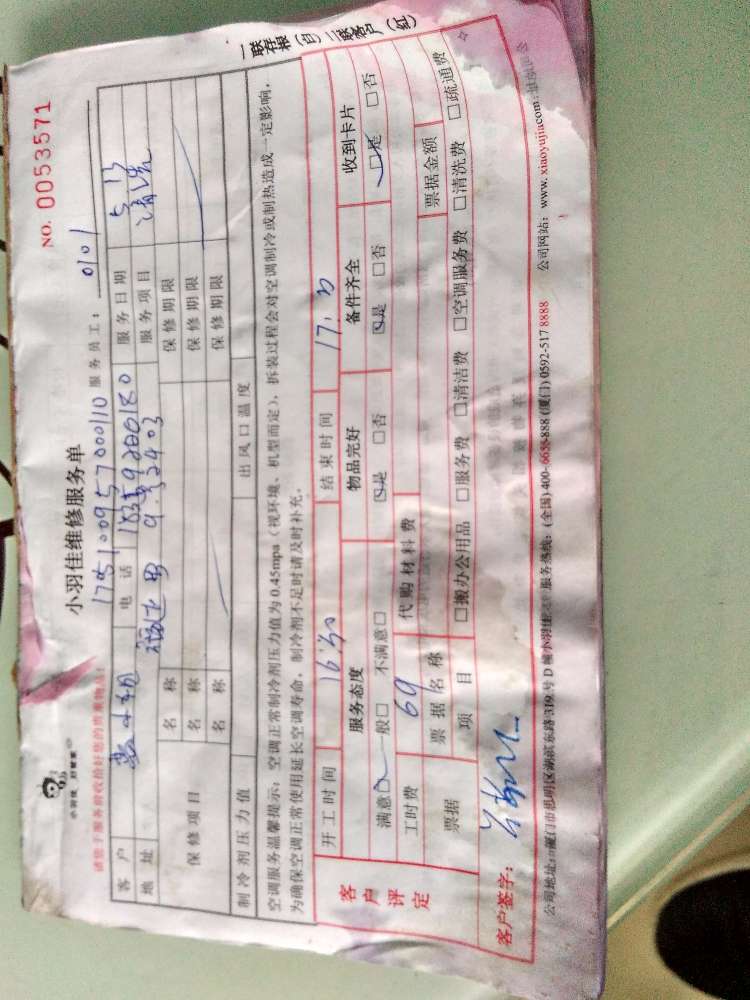 小羽佳维修服务单
NO. 0053571
请您于服务前收拾好您的贵重物品!
服务员工: 0101
客户 电话 18559220180 服务日期 5 13
地址 服务项目 清洗
保修项目 名称 保修期限
名称 保修期限
名称 保修期限
制冷剂压力值 出风口温度
空调服务温馨提示:空调正常制冷剂压力值为0.45mpa(视环境、机型而定),拆装过程会对空调制冷或制热造成一定影响,
为确保空调正常使用延长空调寿命,制冷剂不足时请及时补充。
客户评定
开工时间 16:50 结束时间
服务态度 物品完好 备件齐全 收到卡片
满意□ 一般□ 不满意□ □是 □否 □是 □否 □是 □否
工时费 69 代购材料费
票据 票据名称 票据金额
项目 □搬办公用品 □服务费 □清洁费 □空调服务费 □清洗费 □疏通费
客户签字:
公司地址:厦门市思明区湖滨东路319号D幢小羽佳 服务热线:(全国)400-6655-888 (厦门)0592-517 8888 公司网站:www.xiaoyujia.com
一联存根(白) 二联客户(红)